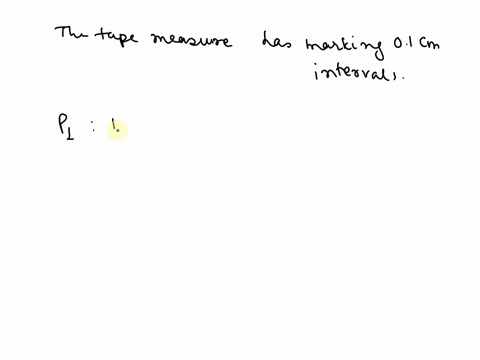 The tape measure has marking 0.1 cm
intervals.
P⊥ : 1.